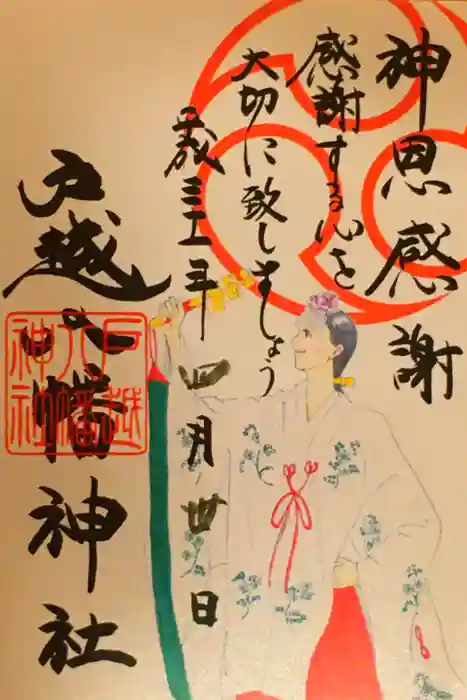 神恩感謝
感謝する心を
大切に致しましょう
平成三十一年四月卅日
戸越八幡神社
戸越八幡神社